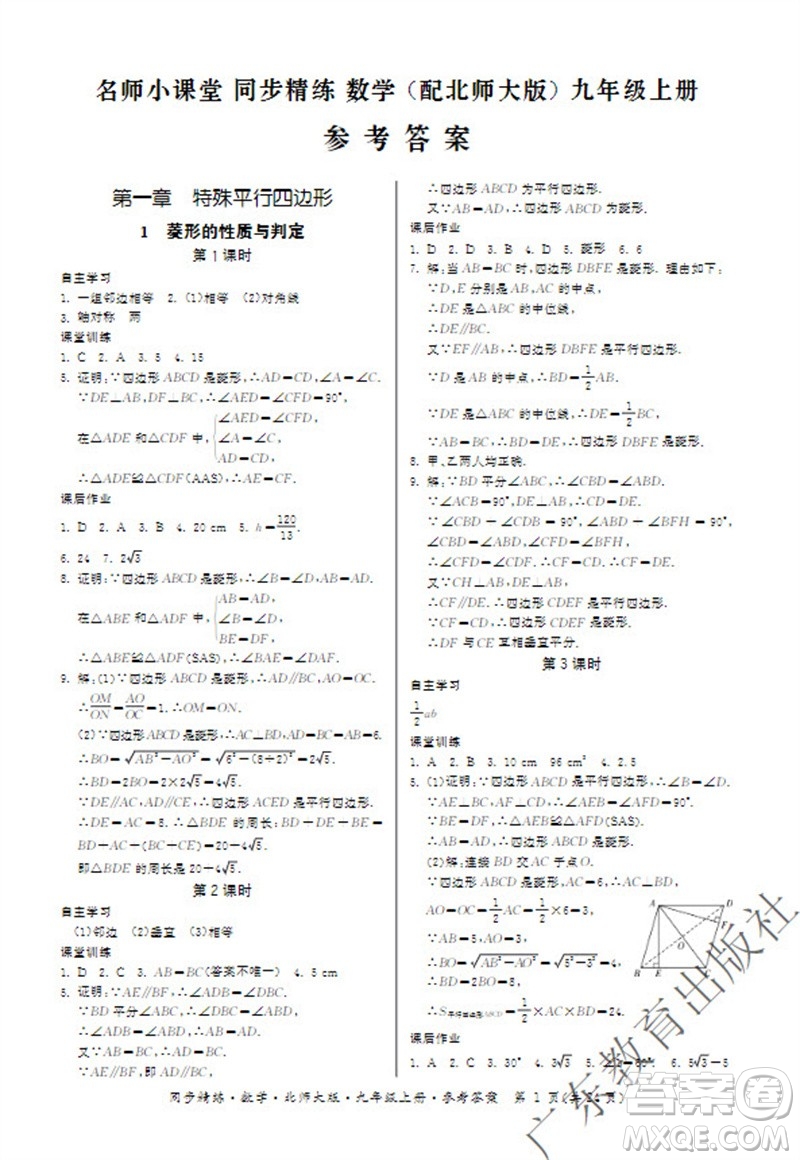 名师小课堂 同步精练 数学(配北师大版)九年级上册
参考答案
第一章 特殊平行四边形
1 菱形的性质与判定
第1课时
自主学习
1. 一组邻边相等 2. (1)相等 (2)对角线
3. 轴对称 两
课堂训练
1. C 2. A 3. 5 4. 15
5. 证明:∵四边形ABCD是菱形,∴AD=CD,∠A=∠C.
∵DE⊥AB,DF⊥BC,∴∠AED=∠CFD=90°,
在△ADE和△CDF中,{∠AED=∠CFD,
∠A=∠C,
AD=CD,
∴△ADE≌△CDF(AAS),∴AE=CF.
课后作业
1. D 2. A 3. B 4. 20 cm 5. h=120/13.
6. 24 7. 2√3
8. 证明:∵四边形ABCD是菱形,∴∠B=∠D,AB=AD.
在△ABE和△ADF中,{AB=AD,
∠B=∠D,
BE=DF,
∴△ABE≌△ADF(SAS),∴∠BAE=∠DAF.
9. 解:(1)∵四边形ABCD是菱形,∴AD∥BC,AO=OC.
∴OM/ON=AO/OC=1.∴OM=ON.
(2)∵四边形ABCD是菱形,∴AC⊥BD,AD=BC=AB=6.
∴BO=√(AB²-AO²)=√(6²-(8÷2)²)=2√5.
∴BD=2BO=2×2√5=4√5.
∵DE∥AC,AD∥CE,∴四边形ACED是平行四边形.
∴DE=AC=8.∴△BDE的周长:BD+DE+BE=
BD+AC+(BC+CE)=20+4√5.
即△BDE的周长是20+4√5.
第2课时
自主学习
(1)邻边 (2)垂直 (3)相等
课堂训练
1. D 2. C 3. AB=BC(答案不唯一) 4. 5 cm
5. 证明:∵AE∥BF,∴∠ADB=∠DBC.
∵BD平分∠ABC,∴∠DBC=∠ABD.
∴∠ADB=∠ABD.∴AB=AD.
又∵AB=BC,∴AD=BC.
∵AE∥BF,即AD∥BC,
∴四边形ABCD为平行四边形.
又∵AB=AD,∴四边形ABCD为菱形.
课后作业
1. D 2. D 3. B 4. D 5. 菱形 6. 6
7. 解:当AB=BC时,四边形DBFE是菱形. 理由如下:
∵D,E分别是AB,AC的中点,
∴DE是△ABC的中位线,
∴DE∥BC.
又∵EF∥AB,∴四边形DBFE是平行四边形.
∵D是AB的中点,∴BD=1/2AB.
∵DE是△ABC的中位线,∴DE=1/2BC,
∵AB=BC,∴BD=DE.∴四边形DBFE是菱形.
8. 甲、乙两人均正确.
9. 解:∵BD平分∠ABC,∴∠CBD=∠ABD.
∵∠ACB=90°,DE⊥AB,∴CD=DE.
∵∠CBD+∠CDB=90°,∠ABD+∠BFH=90°,
∠CBD=∠ABD,∴∠CDB=∠BFH.
∴∠CFD=∠CDF.∴CF=CD.∴CF=DE.
又∵CH⊥AB,DE⊥AB,
∴CF∥DE.∴四边形CDEF是平行四边形.
∵CF=CD,∴四边形CDEF是菱形.
∴DF与CE互相垂直平分.
第3课时
自主学习
1/2ab
课堂训练
1. A 2. B 3. 10 cm 96 cm² 4. 2.5
5. (1)证明:∵四边形ABCD是平行四边形,∴∠B=∠D.
∵AE⊥BC,AF⊥CD,∴∠AEB=∠AFD=90°.
∵BE=DF,∴△AEB≌△AFD(SAS).
(2)解:连接BD交AC于点O.
∵四边形ABCD是菱形,AC=6,∴AC⊥BD,
AO=OC=1/2AC=1/2×6=3.
∵AB=5,AO=3,
∴BO=√(AB²-AO²)=4.
∴BD=2BO=8.
∴S平行四边形ABCD=1/2×AC×BD=24.
A D
F
O
B E C
课后作业
1. A 2. C 3. 30° 4. 3√3 5. x=60° 6. 5√3-5
同步精练·数学·北师大版·九年级上册·参考答案 第1页(共24页)
广东教育出版社
答案圈
MXQE.COM